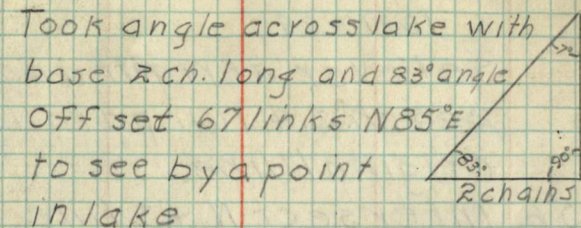 Took angle across lake with
7°
base 2 ch. long and 83° angle
Off set 67 links N85°E
to see by a point
83° 90°
2 chains
in lake